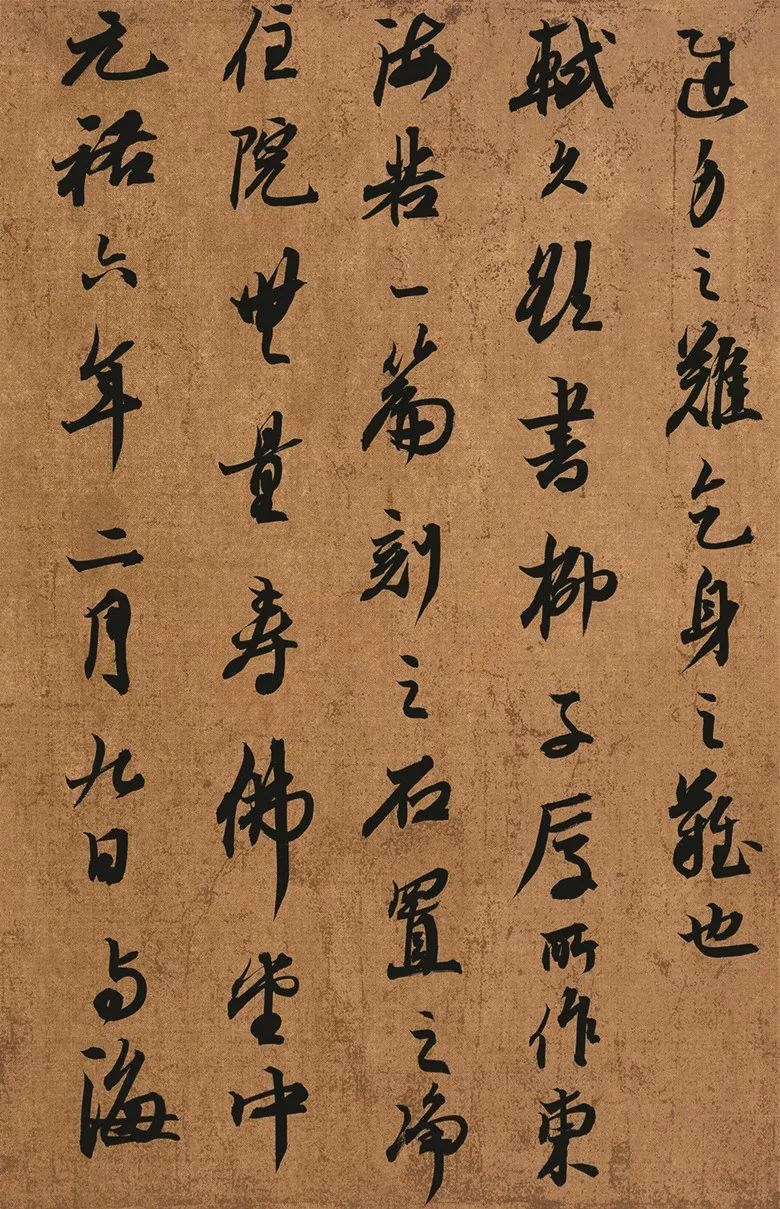 進身之難乞身之難也
軾久欲書柳子厚所作東
海若一篇刻之石置之淨
住院無量壽佛堂中
元祐六年二月九日与海